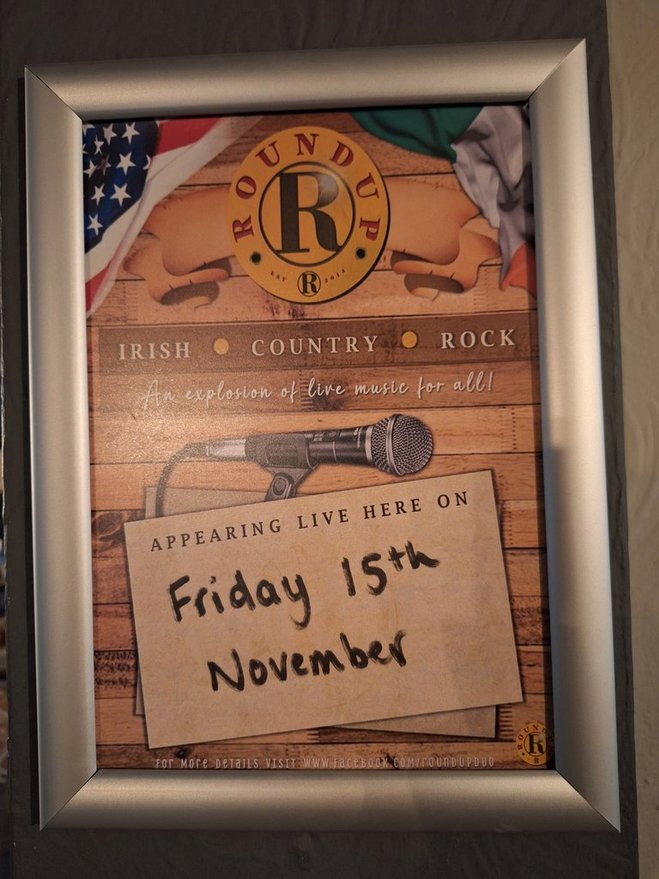 ROUNDUP
R
EST 2014
R
IRISH • COUNTRY • ROCK
An explosion of live music for all!
APPEARING LIVE HERE ON
Friday 15th
November
ROUNDUP
R
FOR MORE DETAILS VISIT WWW.FACEBOOK.COM/ROUNDUPDUO